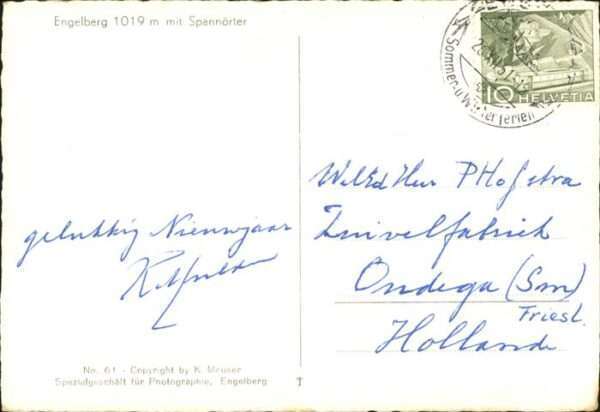 Engelberg 1019 m mit Spannörter
10 HELVETIA
Sommer- u. Winterferien
gelukkig Nieuwjaar
WelEd Heer P Hofstra
Zuivelfabriek
Oudega (Sm)
Friesl.
Holland
No. 61 - Copyright by K. Meuser
Spezialgeschäft für Photographie, Engelberg
T